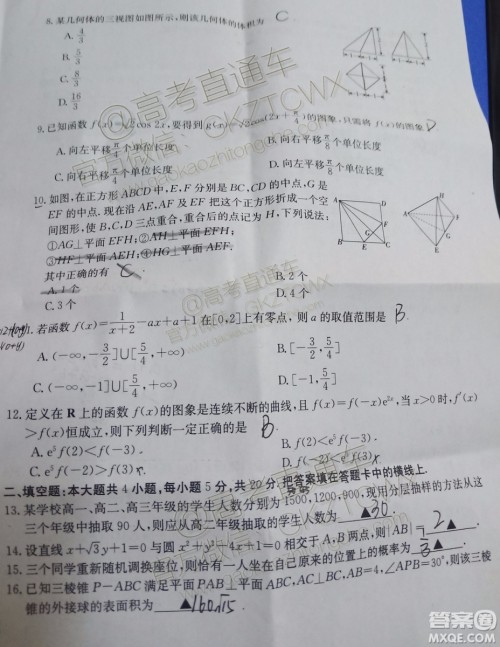 8. 某几何体的三视图如图所示,则该几何体的体积为 C
A. 4/3
B. 5/3
C. 8/3
D. 16/3
9. 已知函数 f(x)=√2cos 2x,要得到 g(x)=√2cos(2x+π/4)的图象,只需将 f(x)的图象 D
A. 向左平移π/4个单位长度 B. 向左平移π/8个单位长度
C. 向右平移π/4个单位长度 D. 向右平移π/8个单位长度
10. 如图,在正方形 ABCD 中,E,F 分别是 BC,CD 的中点,G 是
EF 的中点.现在沿 AE,AF 及 EF 把这个正方形折成一个空
间图形,使 B,C,D 三点重合,重合后的点记为 H,下列说法:
①AG⊥平面 EFH;②AH⊥平面 EFH;
③HF⊥平面 AEH;④HG⊥平面 AEF.
其中正确的有 C
A. 1 个 B. 2 个
C. 3 个 D. 4 个
11. 若函数 f(x)=1/(x+2)-ax+a+1 在[0,2]上有零点,则 a 的取值范围是 B
A. (-∞,-3/2]∪[5/4,+∞) B. [-3/2,5/4]
C. (-∞,-1]∪[5/4,+∞) D. [-1,5/4]
12. 定义在 R 上的函数 f(x)的图象是连续不断的曲线,且 f(x)=f(-x)e²ˣ,当 x>0 时,f′(x)
>f(x)恒成立,则下列判断一定正确的是 B
A. e⁵f(2)<f(3) B. f(2)<e⁵f(-3)
C. e⁵f(-2)>f(3) D. f(-2)<e⁵f(-3)
二、填空题:本大题共 4 小题,每小题 5 分,共 20 分.把答案填在答题卡中的横线上.
13. 某学校高一、高二、高三年级的学生人数分别为 1500,1200,900,现用分层抽样的方法从这
三个年级中抽取 90 人,则应从高二年级中抽取的学生人数为 ▲ 30 .
14. 设直线 x+√3y+1=0 与圆 x²+y²-4x=0 相交于 A,B 两点,则|AB|= ▲ 2
15. 三个同学重新随机调换座位,则恰有一人坐在自己原来的位置上的概率为 ▲
16. 已知三棱锥 P-ABC 满足平面 PAB⊥平面 ABC,AC⊥BC,AB=4,∠APB=30°,则该三棱
锥的外接球的表面积为 ▲
高考直通车
GKZTCWX
gaokaozhitongche.com
答案圈
MXQE.COM